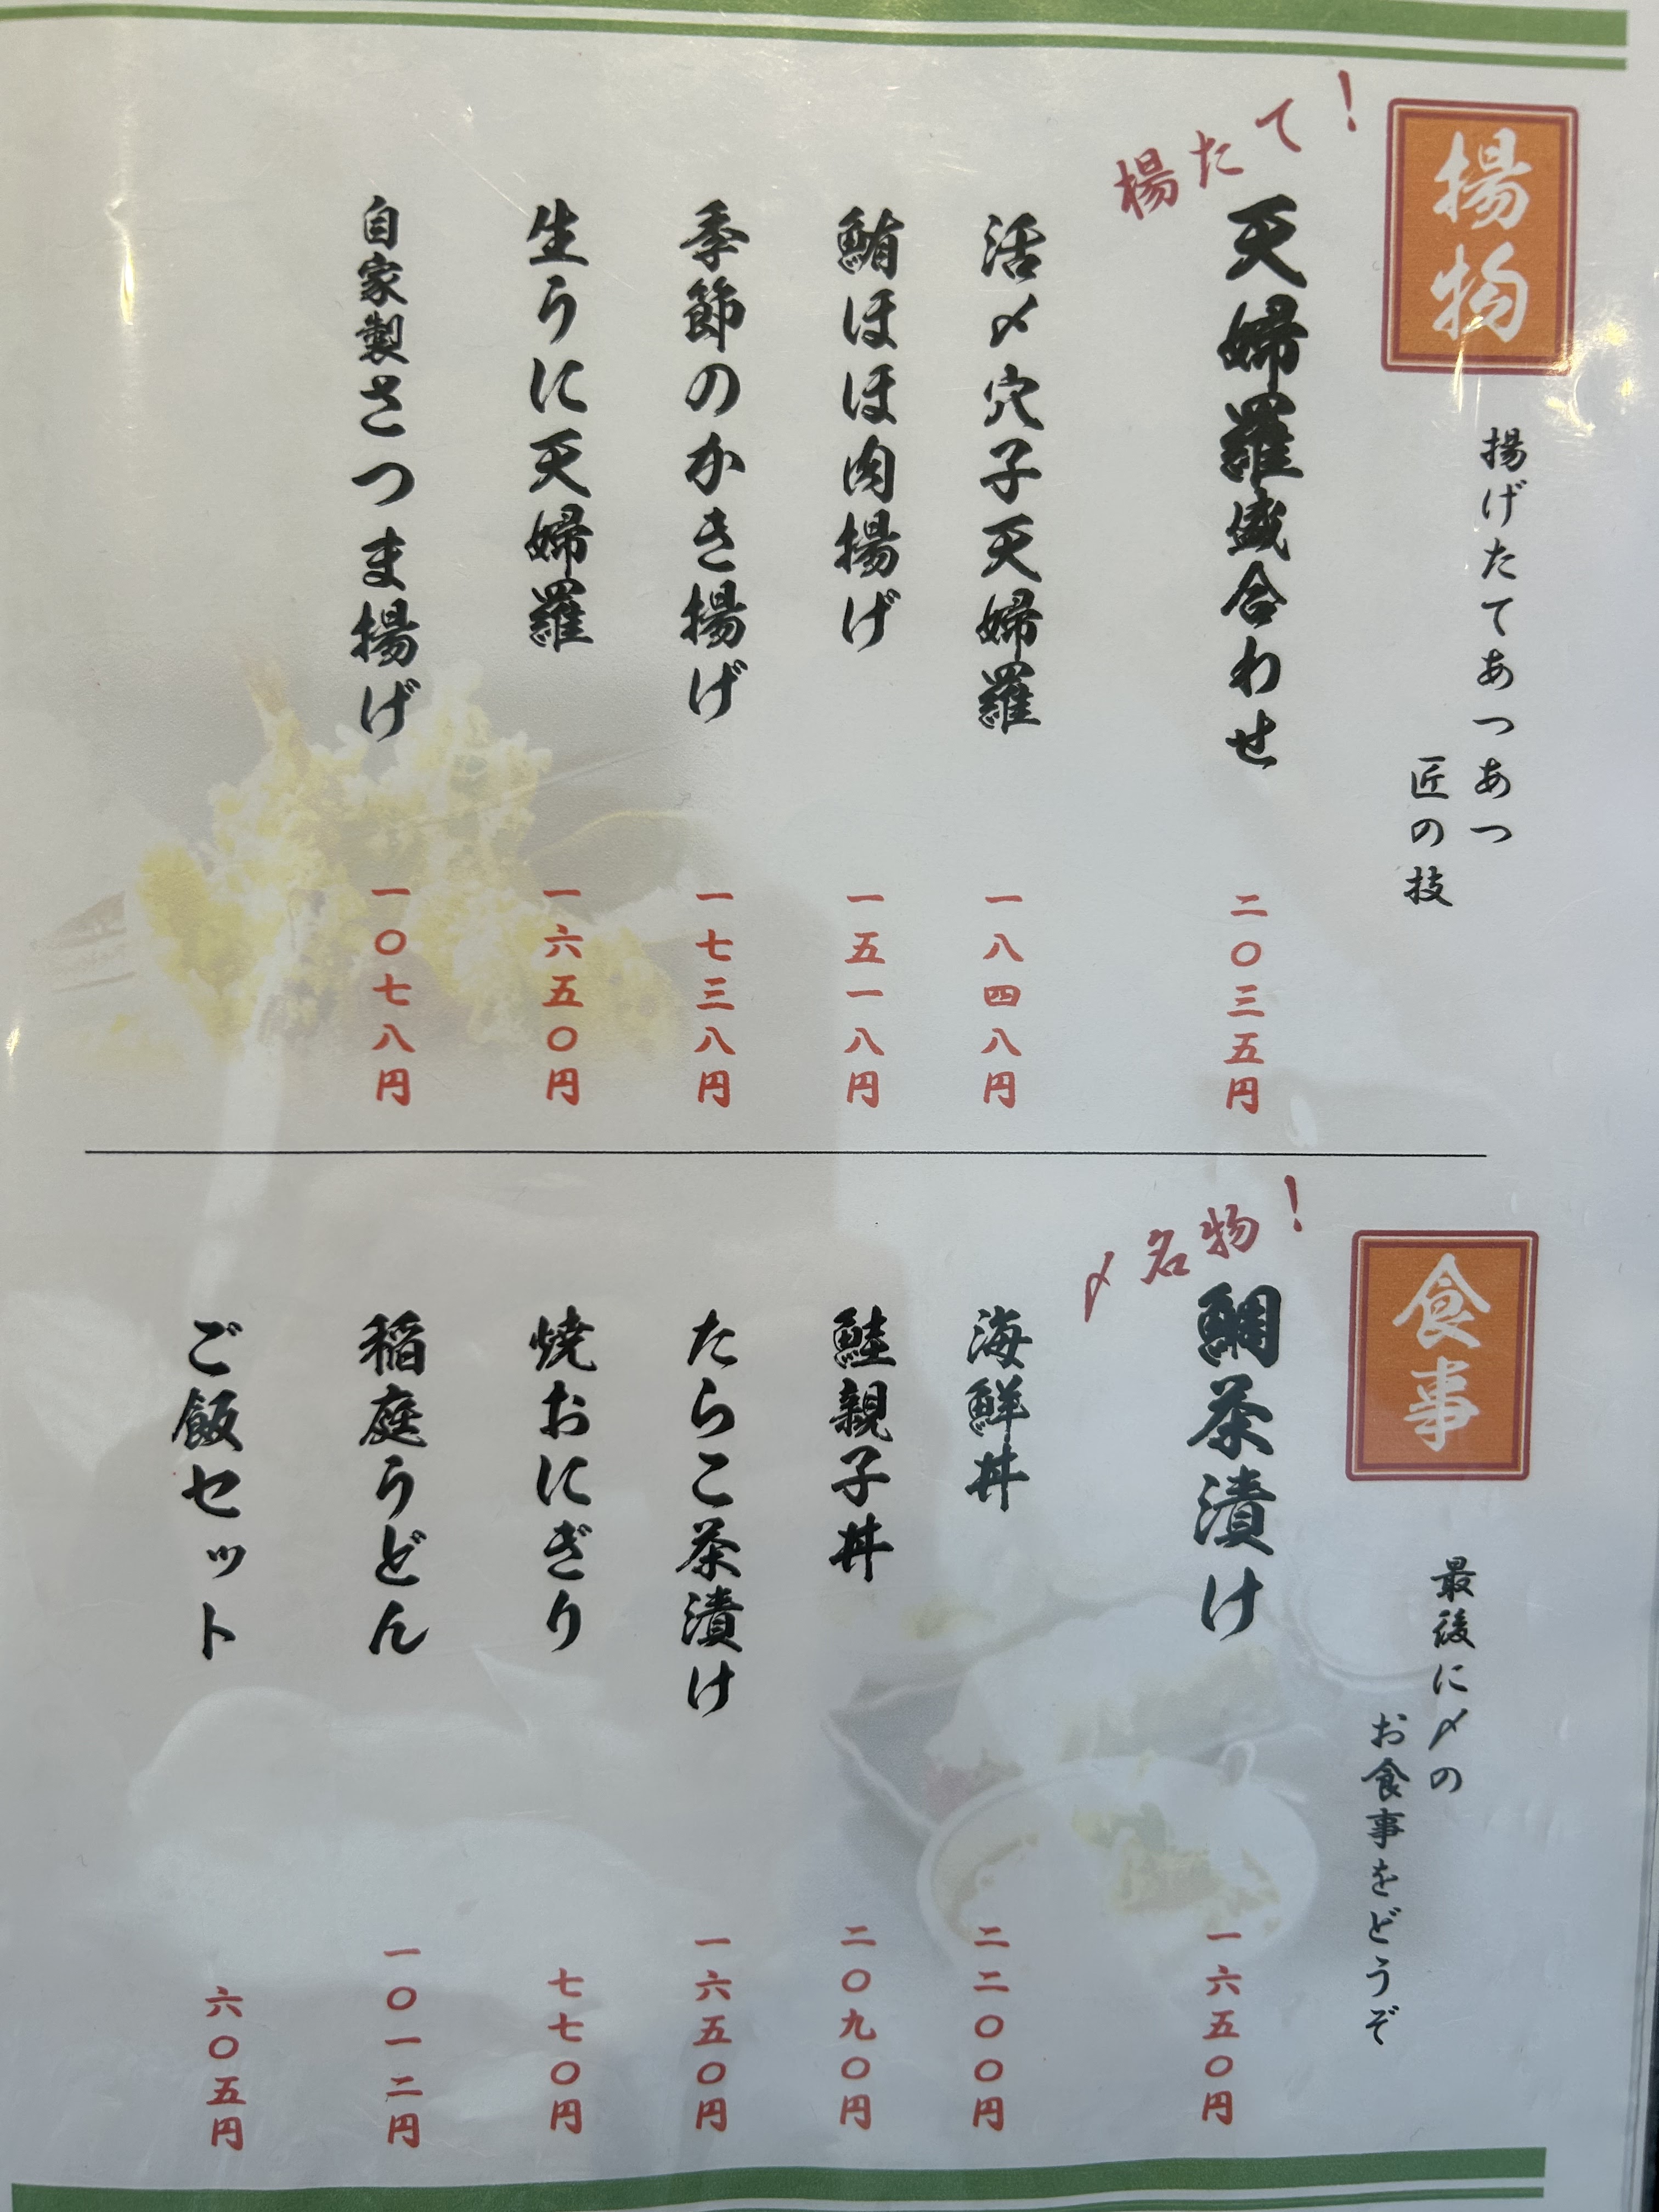 揚物
揚げたてあつあつ
匠の技
揚たて！
天婦羅盛合わせ 二〇三五円
活〆穴子天婦羅 一八四八円
鮪ほほ肉揚げ 一五一八円
季節のかき揚げ 一七三八円
生うに天婦羅 一六五〇円
自家製さつま揚げ 一〇七八円
食事
最後に〆の
お食事をどうぞ
〆名物！
鯛茶漬け 一六五〇円
海鮮丼 二二〇〇円
鮭親子丼 二〇九〇円
たらこ茶漬け 一六五〇円
焼おにぎり 七七〇円
稲庭うどん 一〇一二円
ご飯セット 六〇五円